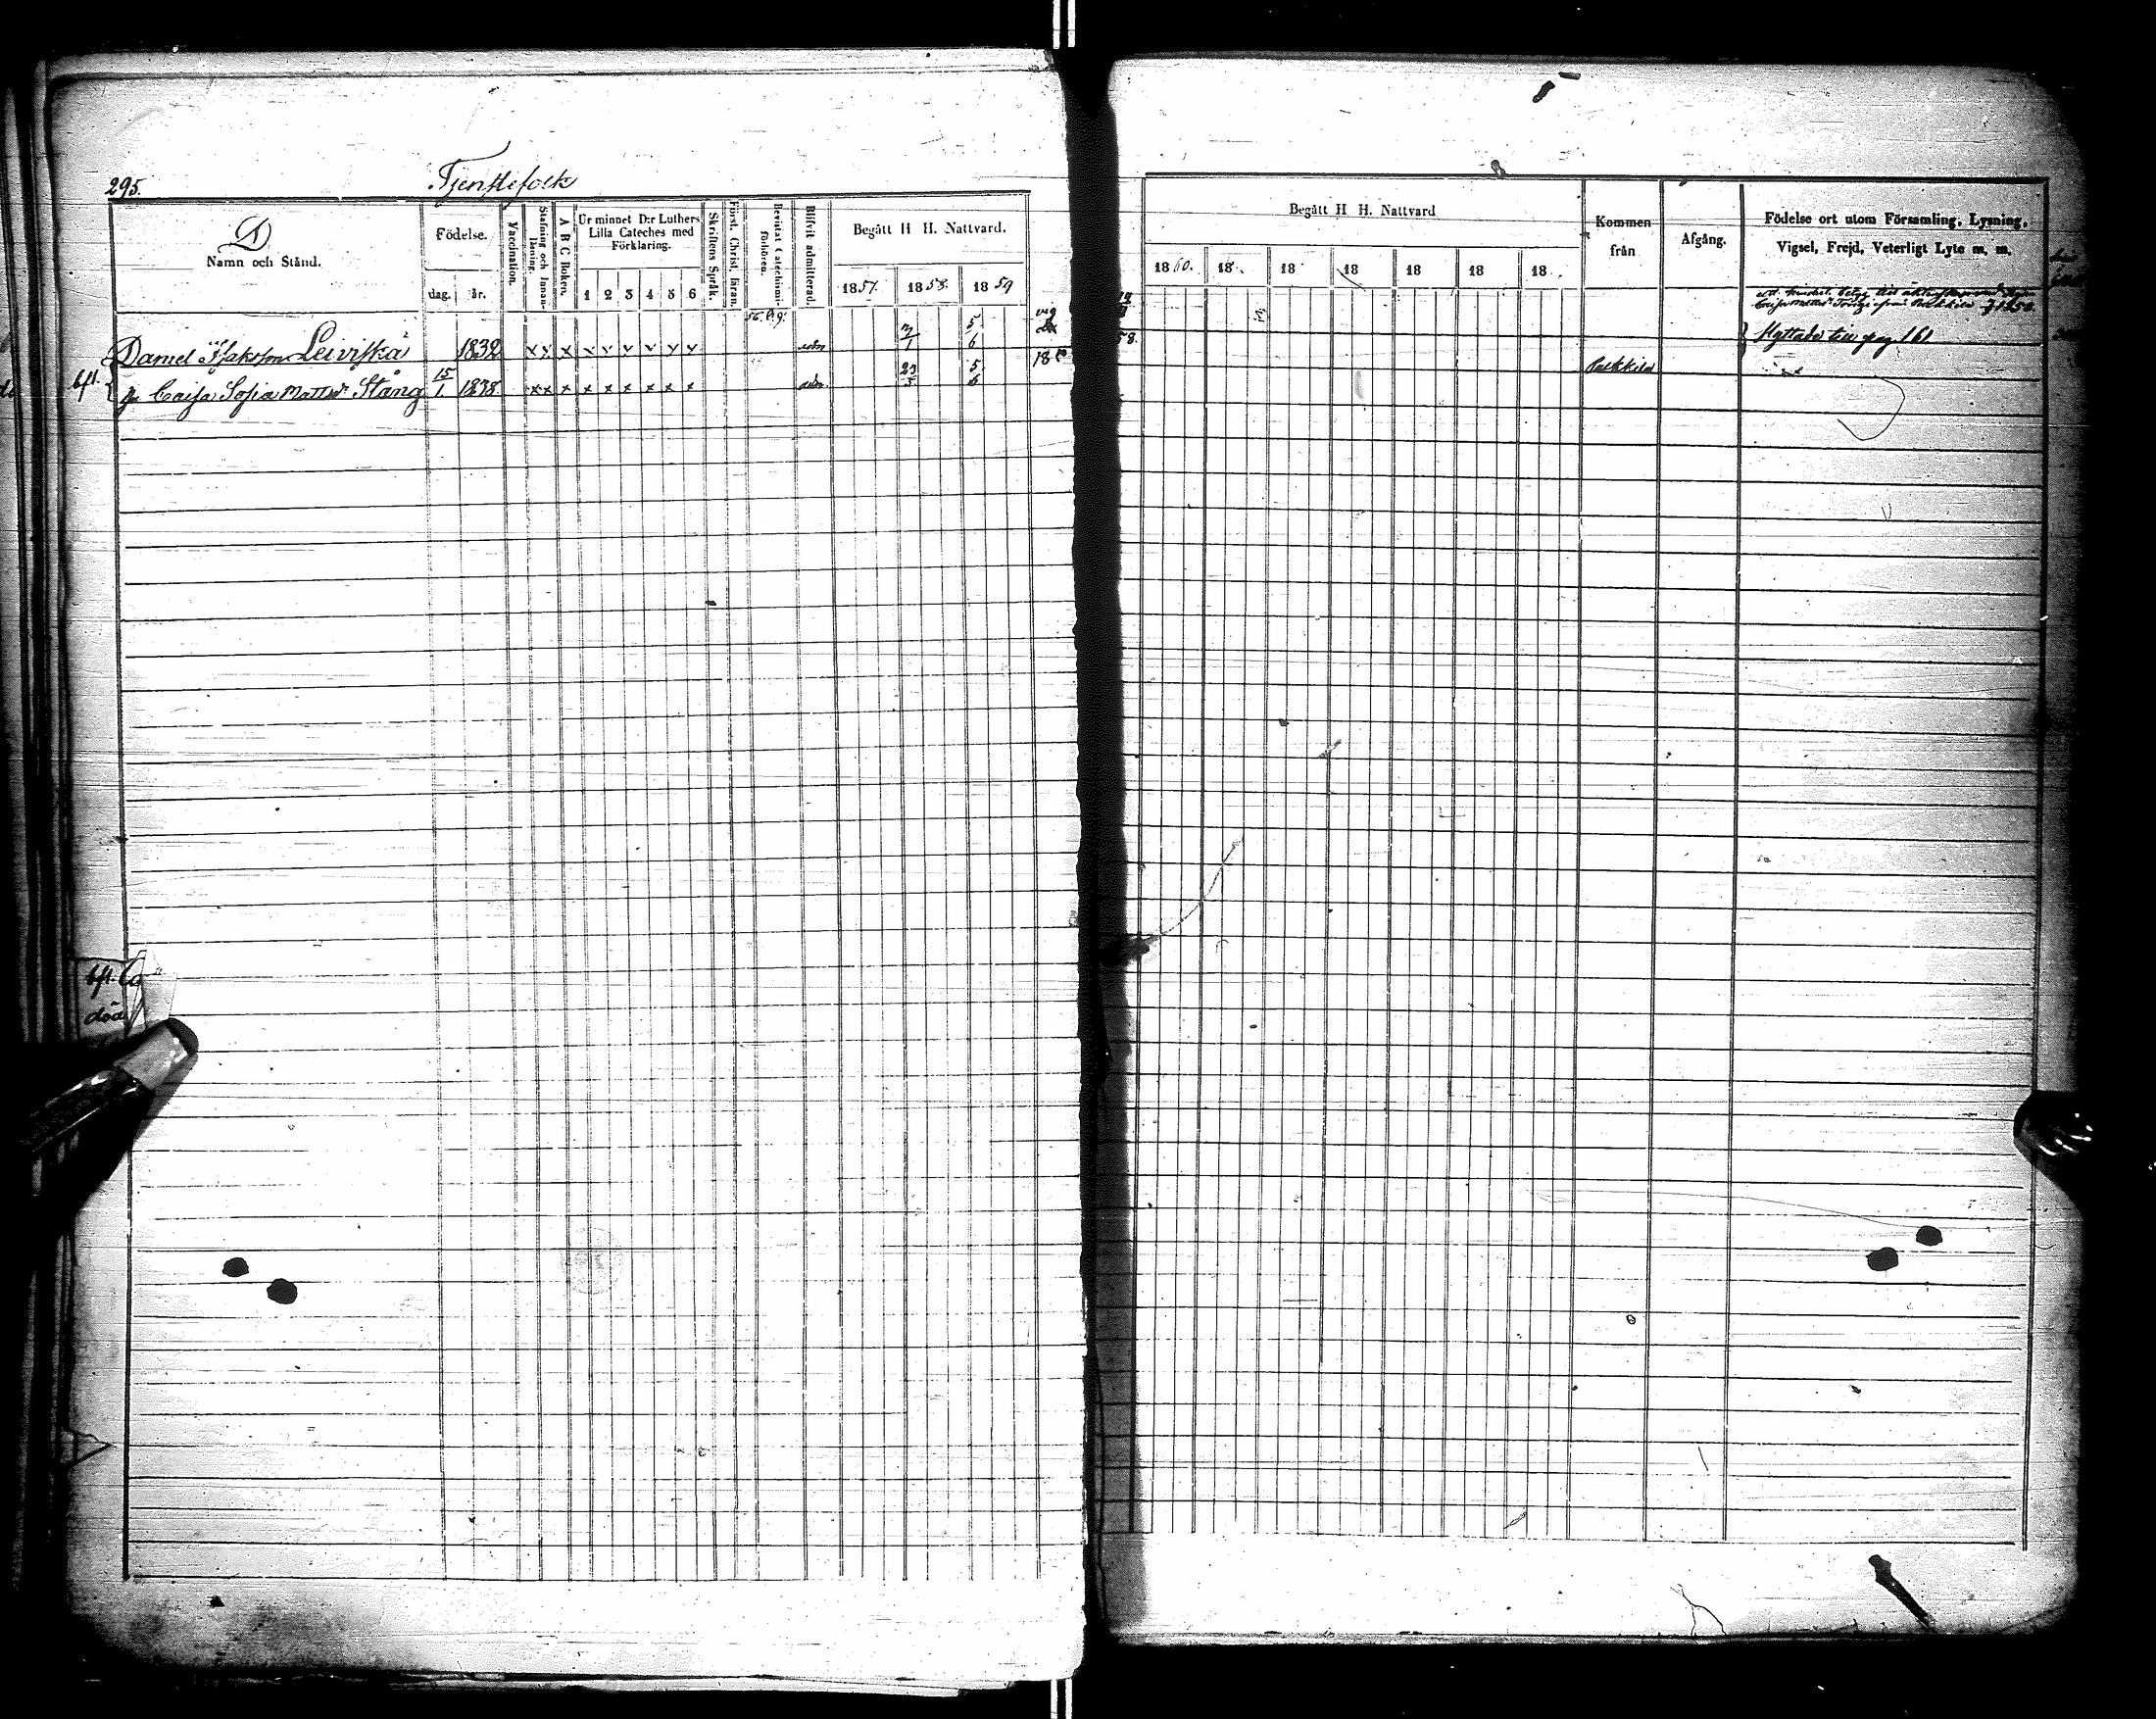 295.
Tjenstefolk
D
Namn och Stånd.
Födelse.
dag.
år.
Vaccination.
Stafning och Innan-läsning.
A B C Boken.
Ur minnet D:r Luthers
Lilla Cateches med
Förklaring.
1 2 3 4 5 6
Skriftens Språk.
Först. Christ. läran.
Bevistat Catechismi-förhören.
Blifvit admitterad.
Begått H H. Nattvard.
1857. 1858. 1859
Begått H H. Nattvard
1860. 18 18 18 18 18 18
Kommen
från
Afgång.
Födelse ort utom Församling, Lysning,
Vigsel, Frejd, Veterligt Lyte m. m.
Daniel Isaksson Leiviskä 1832 x x x x x x x x x adm 5/6
Flyttade till pag 161
bft. Caisa Sofia Mattsd. Stång 15/1 1838. x x x x x x x x x adm. 23/5 5/6
bft. Ca
död